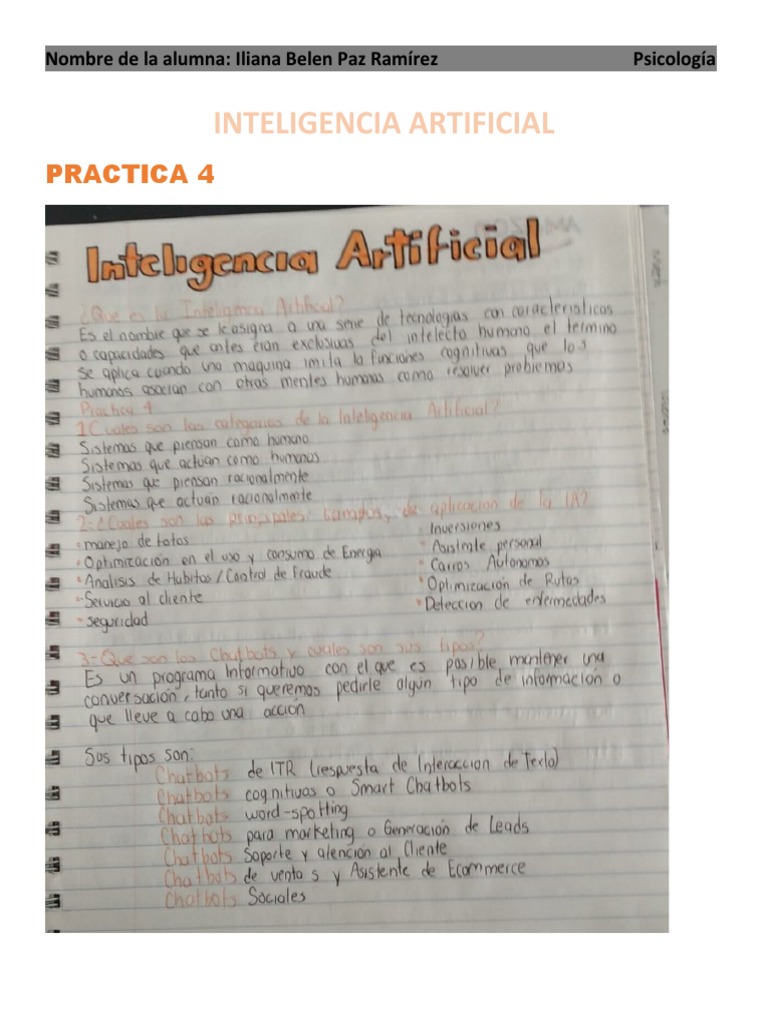 Nombre de la alumna: Iliana Belen Paz Ramírez Psicología
INTELIGENCIA ARTIFICIAL
PRACTICA 4
Inteligencia Artificial
¿Que es la Inteligencia Artificial?
Es el nombre que se le asigna a una serie de tecnologias con caracteristicas
o capacidades que antes eran exclusivas del intelecto humano el termino
se aplica cuando una maquina imita la funciones cognitivas que los
humanos asocian con otras mentes humanas como resolver problemas
Practica 4
1 Cuales son las categorias de la Inteligencia Artificial?
Sistemas que piensan como humano
Sistemas que actuan como humanos
Sistemas que piensan racionalmente
Sistemas que actuan racionalmente
2-¿Cuales son las principales de aplicacion de la IA?
manejo de
Optimización en el uso y consumo de Energia
Analisis de Habitos / Control de Fraude
Servicio al cliente
seguridad
Inversiones
personal
Carros Autonomos
Optimización de Rutas
Deteccion de enfermedades
3-Que son los Chatbots y cuales son sus tipos?
Es un programa Informativo con el que es posible, mantener una
conversación, tanto si queremos pedirle algún tipo de información o
que lleve a cabo una acción
Sus tipos son:
Chatbots de ITR (respuesta de Interaccion de Texto)
Chatbots cognitivos o Smart Chatbots
Chatbots word-spotting
Chatbots para marketing o Generación de Leads
Chatbots Soporte y atención al Cliente
Chatbots de venta s y Asistente de Ecommerce
Chatbots Sociales